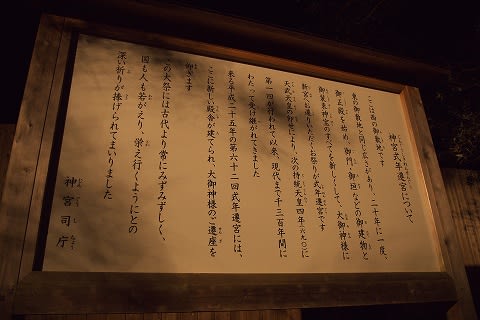 神宮式年遷宮について
ここは西の御敷地です
東の御敷地と同じ広さがあり、二十年に一度、
御正殿を始め、御門、御垣などの御建物と
御装束神宝のすべてを新しくして、大御神様に
新宮へお遷りいただくお祭りが式年遷宮です
天武天皇の御代により、次の持統天皇四年(六九〇)に
第一回が行われて以来、現代まで千三百年間に
わたって受け継がれてきました
来る平成二十五年の第六十二回式年遷宮には、
ここに新しい殿舎が建てられ、大御神様のご遷座を
仰ぎます
この大祭には古代より常にみずみずしく、
国も人も若がえり、栄え行くようにとの
深い祈りが捧げられてまいりました
神宮司庁